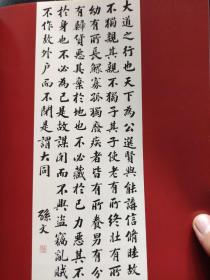 大道之行也天下為公選賢與能講信脩睦故
不獨親其親不獨子其子使老有所終壯有所
幼有所長鰥寡孤獨廢疾者皆有所養男有分
有歸貨惡其棄於地也不必藏於己力惡其不
於身也不必為己是故謀閉而不興盜竊亂賊
不作故外戶而不閉是謂大同
孫文